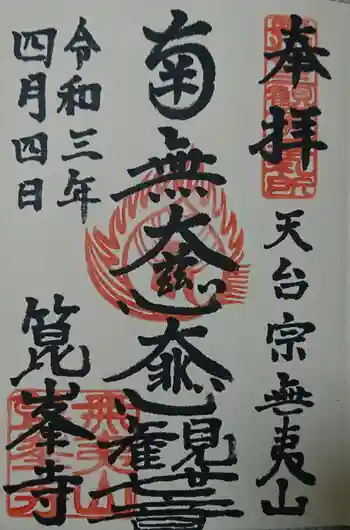 奉拝
天台宗無夷山
南無大慈大悲観世音
箟峯寺
令和三年
四月四日